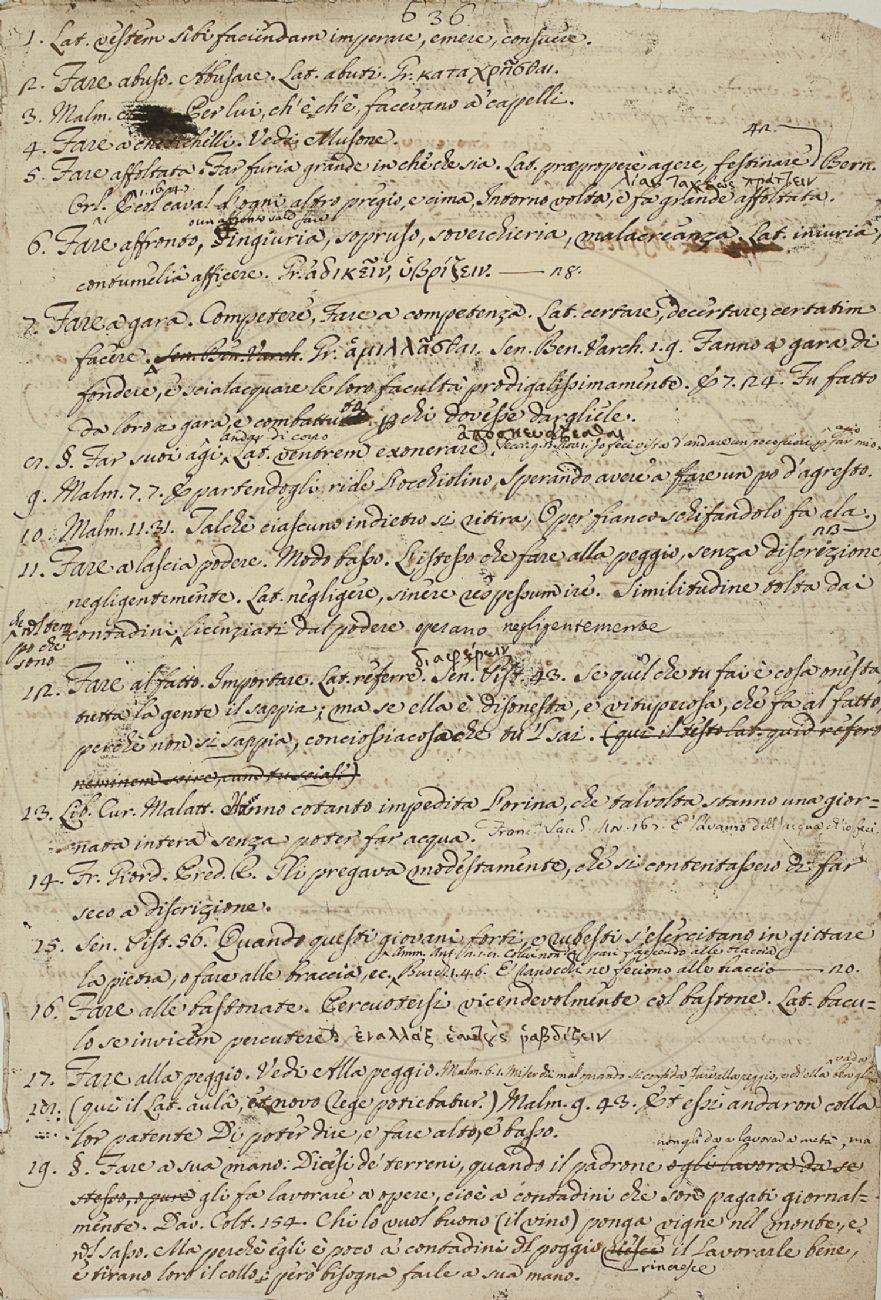 636
1. Lat. vestem sibi faciundam imperare, emere, consuere.
2. Fare abuso. Abusare. Lat. abuti. Gr. καταχρῆσθαι.
3. Malm. Per lui, ch'è ch'è, facevano a' capelli.
4. Fare a chetichelli. Vedi Musone.
5. Fare affoltata. Far furia grande in che che sia. Lat. præpropere agere, festinare. Bern.
λίαν ταχέως πράττειν
Orl. 1. 16. E col caval d'ogni altro pregio, e cima, Intorno volta, e fa grande affoltata.
6. Fare affronto, ingiuria, sopruso, soverchieria, malacreanza. Lat. iniuria,
contumelia afficere. Gr. ἀδικεῖν, ὑβρίζειν. — 18.
7. Fare a gara. Competere, Fare a competenza. Lat. certare, decertare, certatim
facere. Sen. Ben. Varch. Gr. ἁμιλλᾶσθαι. Sen. Ben. Varch. 1. 9. Fanno a gara di
fondere, e scialacquare le loro facultà prodigalissimamente. E 7. 24. Fu fatto
da loro a gara, e combattuto, chi dovesse dargliele.
andar di corpo ἀποσκευάζεσθαι
§. Far suoi agi, Lat. ventrem exonerare
9. Malm. 7. 7. E partendogli ride l'occhiolino, Sperando avere a fare un po d'agresto.
10. Malm. 11. 31. Talchè ciascuno indietro si ritira, O per fianco schifandolo fa ala.
11. Fare a lascia podere. Modo basso. L'istesso che fare alla peggio, senza discrezione,
negligentemente. Lat. negligere, sinere res pessum ire. Similitudine tolta dai
contadini, che nel tempo che sono licenziati dal podere operano negligentemente
διαφέρειν
12. Fare al fatto. Importare. Lat. referre. Sen. Pist. 43. Se quel che tu fai è cosa onesta
tutta la gente il sappia; ma se ella è disonesta, e vituperosa, che fa al fatto,
perchè non si sappia, conciossiacosa che tu 'l sai. (qui il testo Lat. quid refert
neminem scire, cum tu scias?)
13. Lib. Cur. Malatt. Hanno cotanto impedita l'orina, che talvolta stanno una gior-
nata intera senza poter far acqua. Franc. Sacch. Nov. 167.
14. Fr. Giord. Pred. R. Gli pregava modestamente, che si contentassero di far
seco a discrizione.
15. Sen. Pist. 56. Quando questi giovani forti, e rubesti s'esercitano in gittare
la pietra, o fare alle braccia, ec. Burch. 1. 46. E i ranocchi ne feciono alle braccia — 20.
16. Fare alle bastonate. Percuotersi vicendevolmente col bastone. Lat. bacu-
lo se invicem percutere. ἐναλλὰξ ἑαυτοὺς ῥαβδίζειν
17. Fare alla peggio. Vedi Alla peggio.
18. (qui il Lat. aula, et novo rege potietur.) Malm. 9. 43. Et essi andaron colla
lor patente Di poter dire, e fare alto, e basso.
non gli da a lavorar a metà, ma
19. §. Fare a sua mano: Dicesi de' terreni, quando il padrone o gli lavora da se
stesso, o pure gli fa lavorare a opere, cioè a' contadini che sono pagati giornal-
mente. Dav. Colt. 154. Chi lo vuol buono (il vino) ponga vigne nel monte, e
nel sasso. Ma perchè egli è poco a' contadini del poggio rincresce il lavorarle bene,
e tirano loro il collo; però bisogna farle a sua mano.